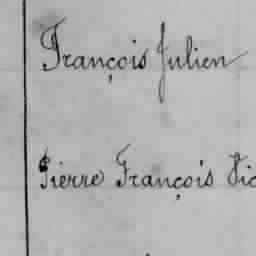 François Julien
Pierre François Vic